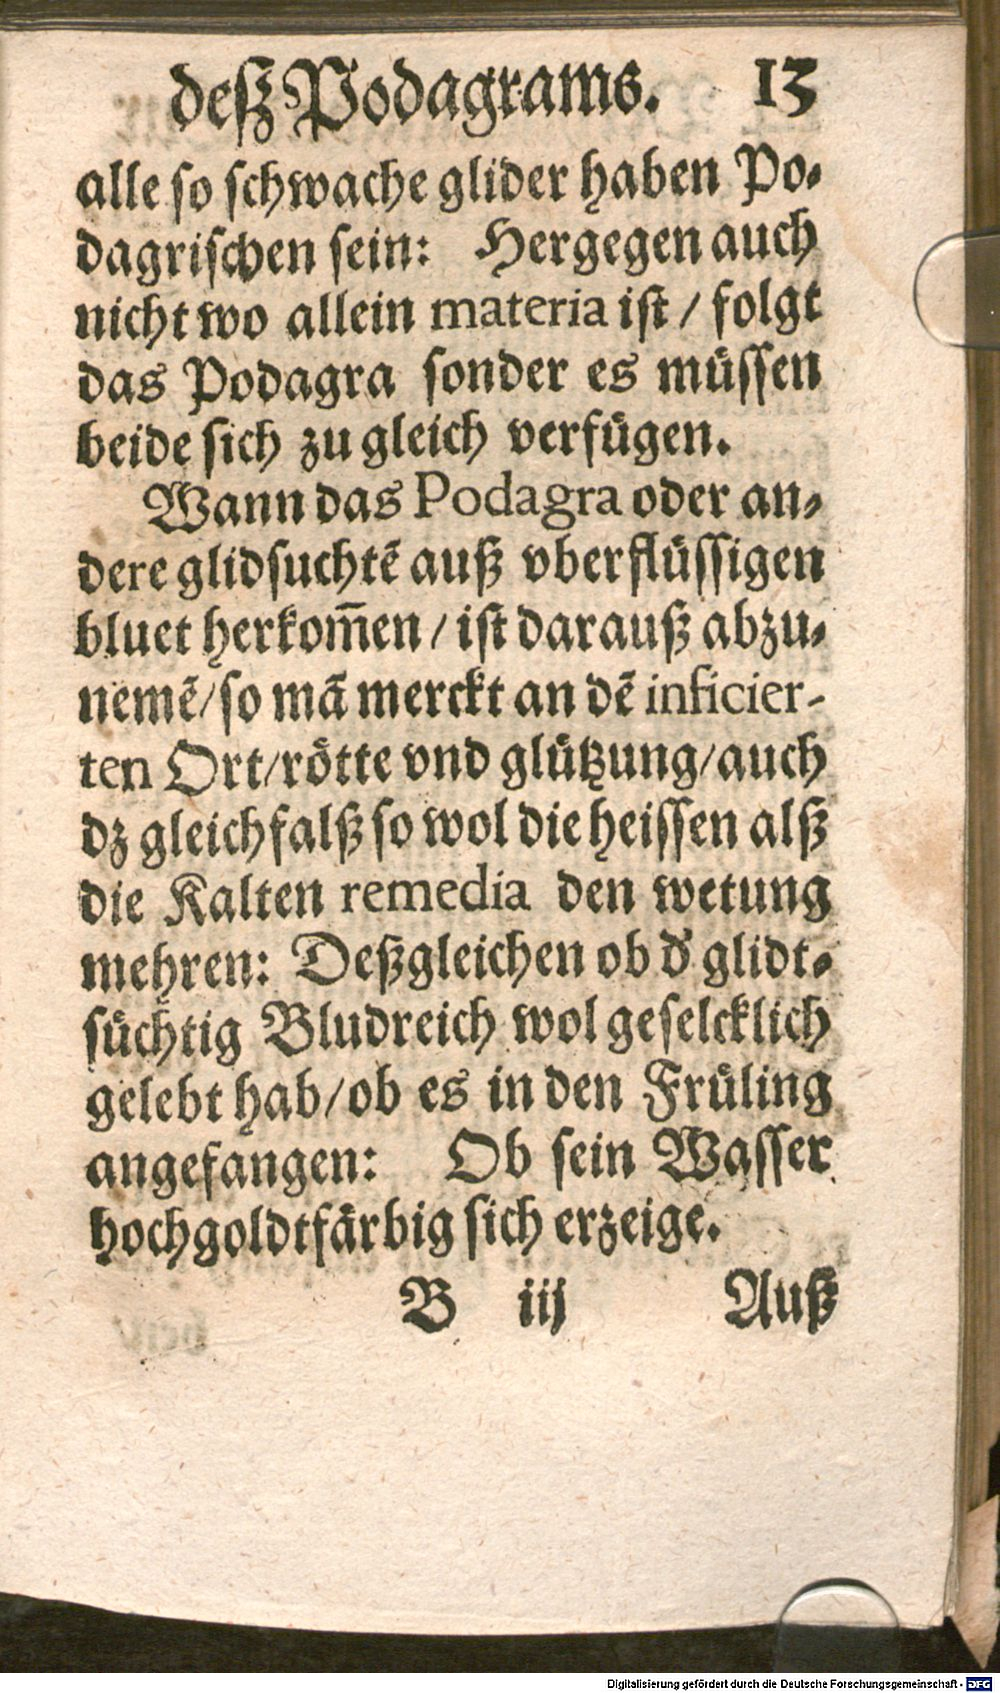 deß Podagrams. 13
alle so schwache glider haben Po-
dagrischen sein: Hergegen auch
nicht wo allein materia ist / folgt
das Podagra sonder es müssen
beide sich zu gleich verfügen.
Wann das Podagra oder an-
dere glidsuchtẽ auß vberflüssigen
bluet herkom̃en / ist darauß abzu-
nemẽ/so mã merckt an dẽ inficier-
ten Ort/rötte vnd glützung/auch
dz gleichfalß so wol die heissen alß
die Kalten remedia den wetung
mehren: Deßgleichen ob d' glidt-
süchtig Bludreich wol geselcklich
gelebt hab/ob es in den Früling
angefangen: Ob sein Wasser
hochgoldtfärbig sich erzeige.
B iij Auß
Digitalisierung gefördert durch die Deutsche Forschungsgemeinschaft - DFG